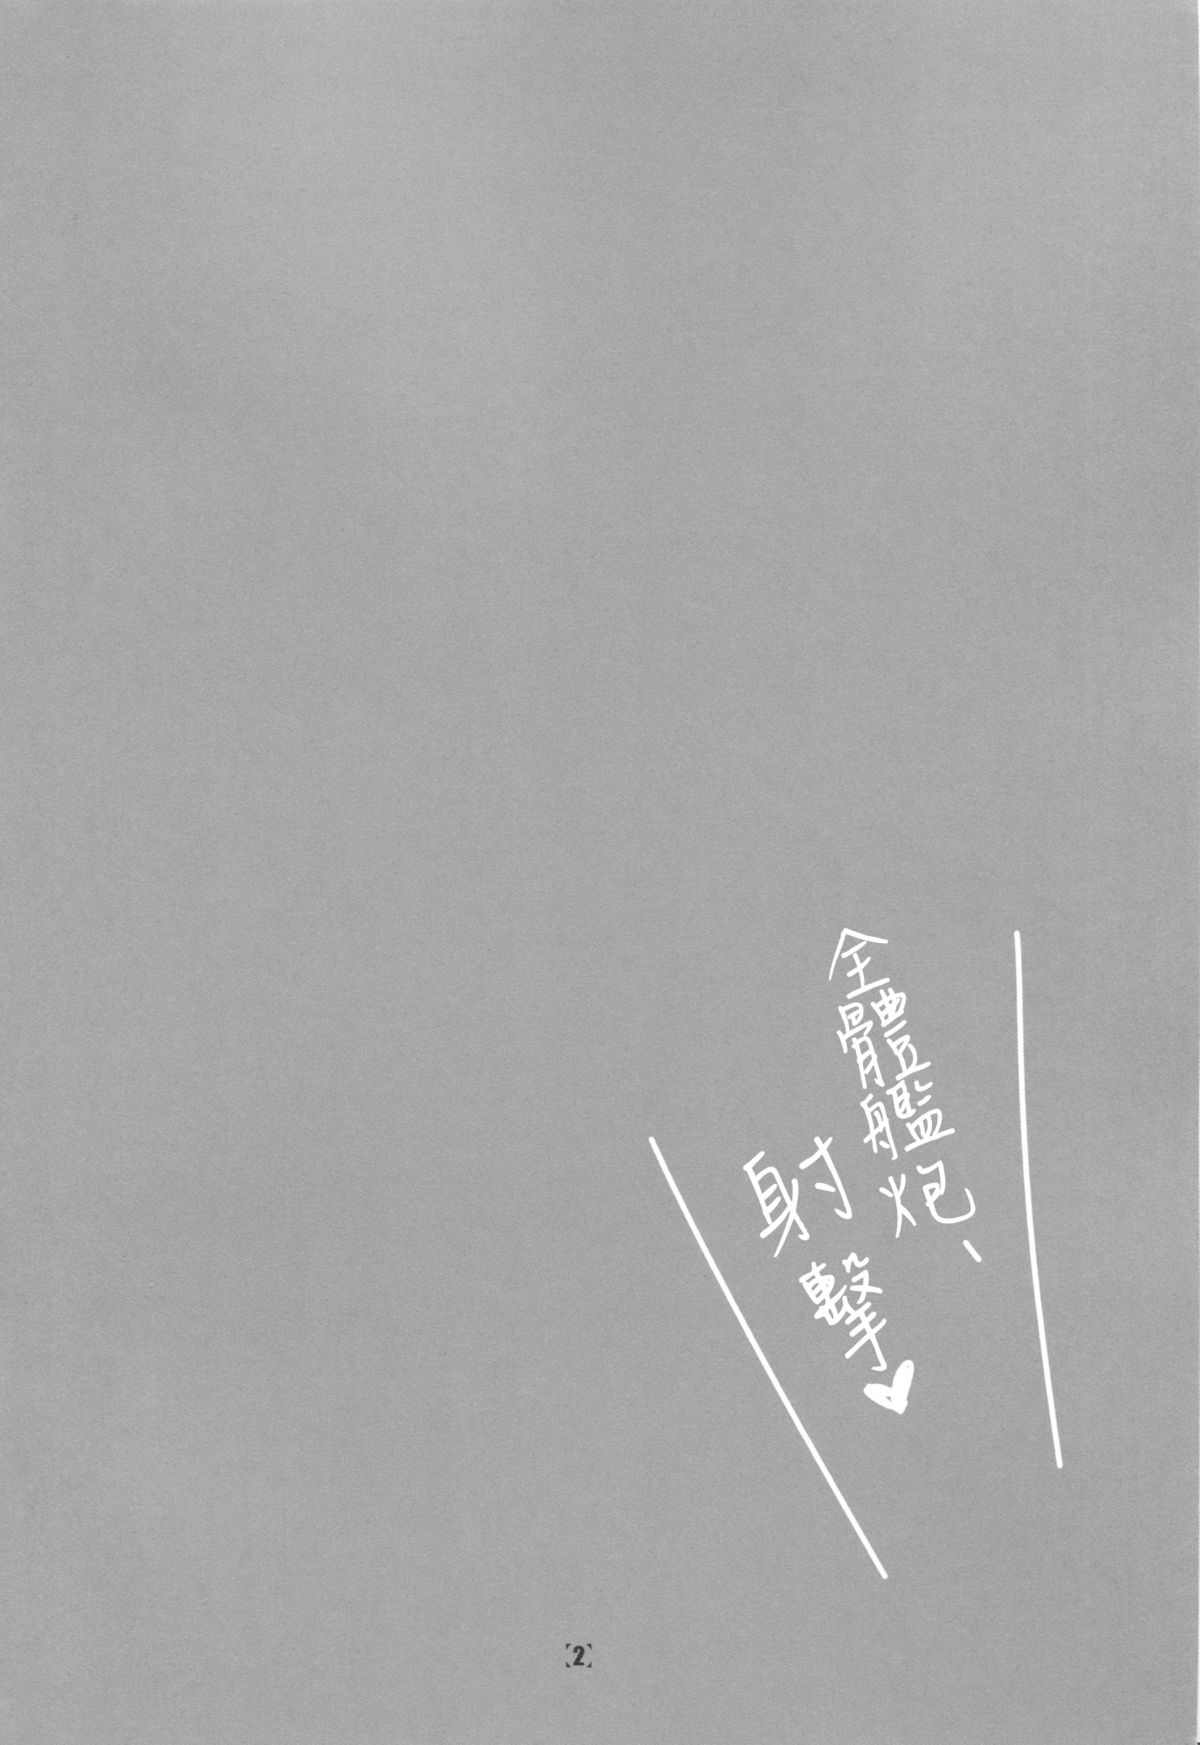 全體艦炮、
射擊♥
【2】